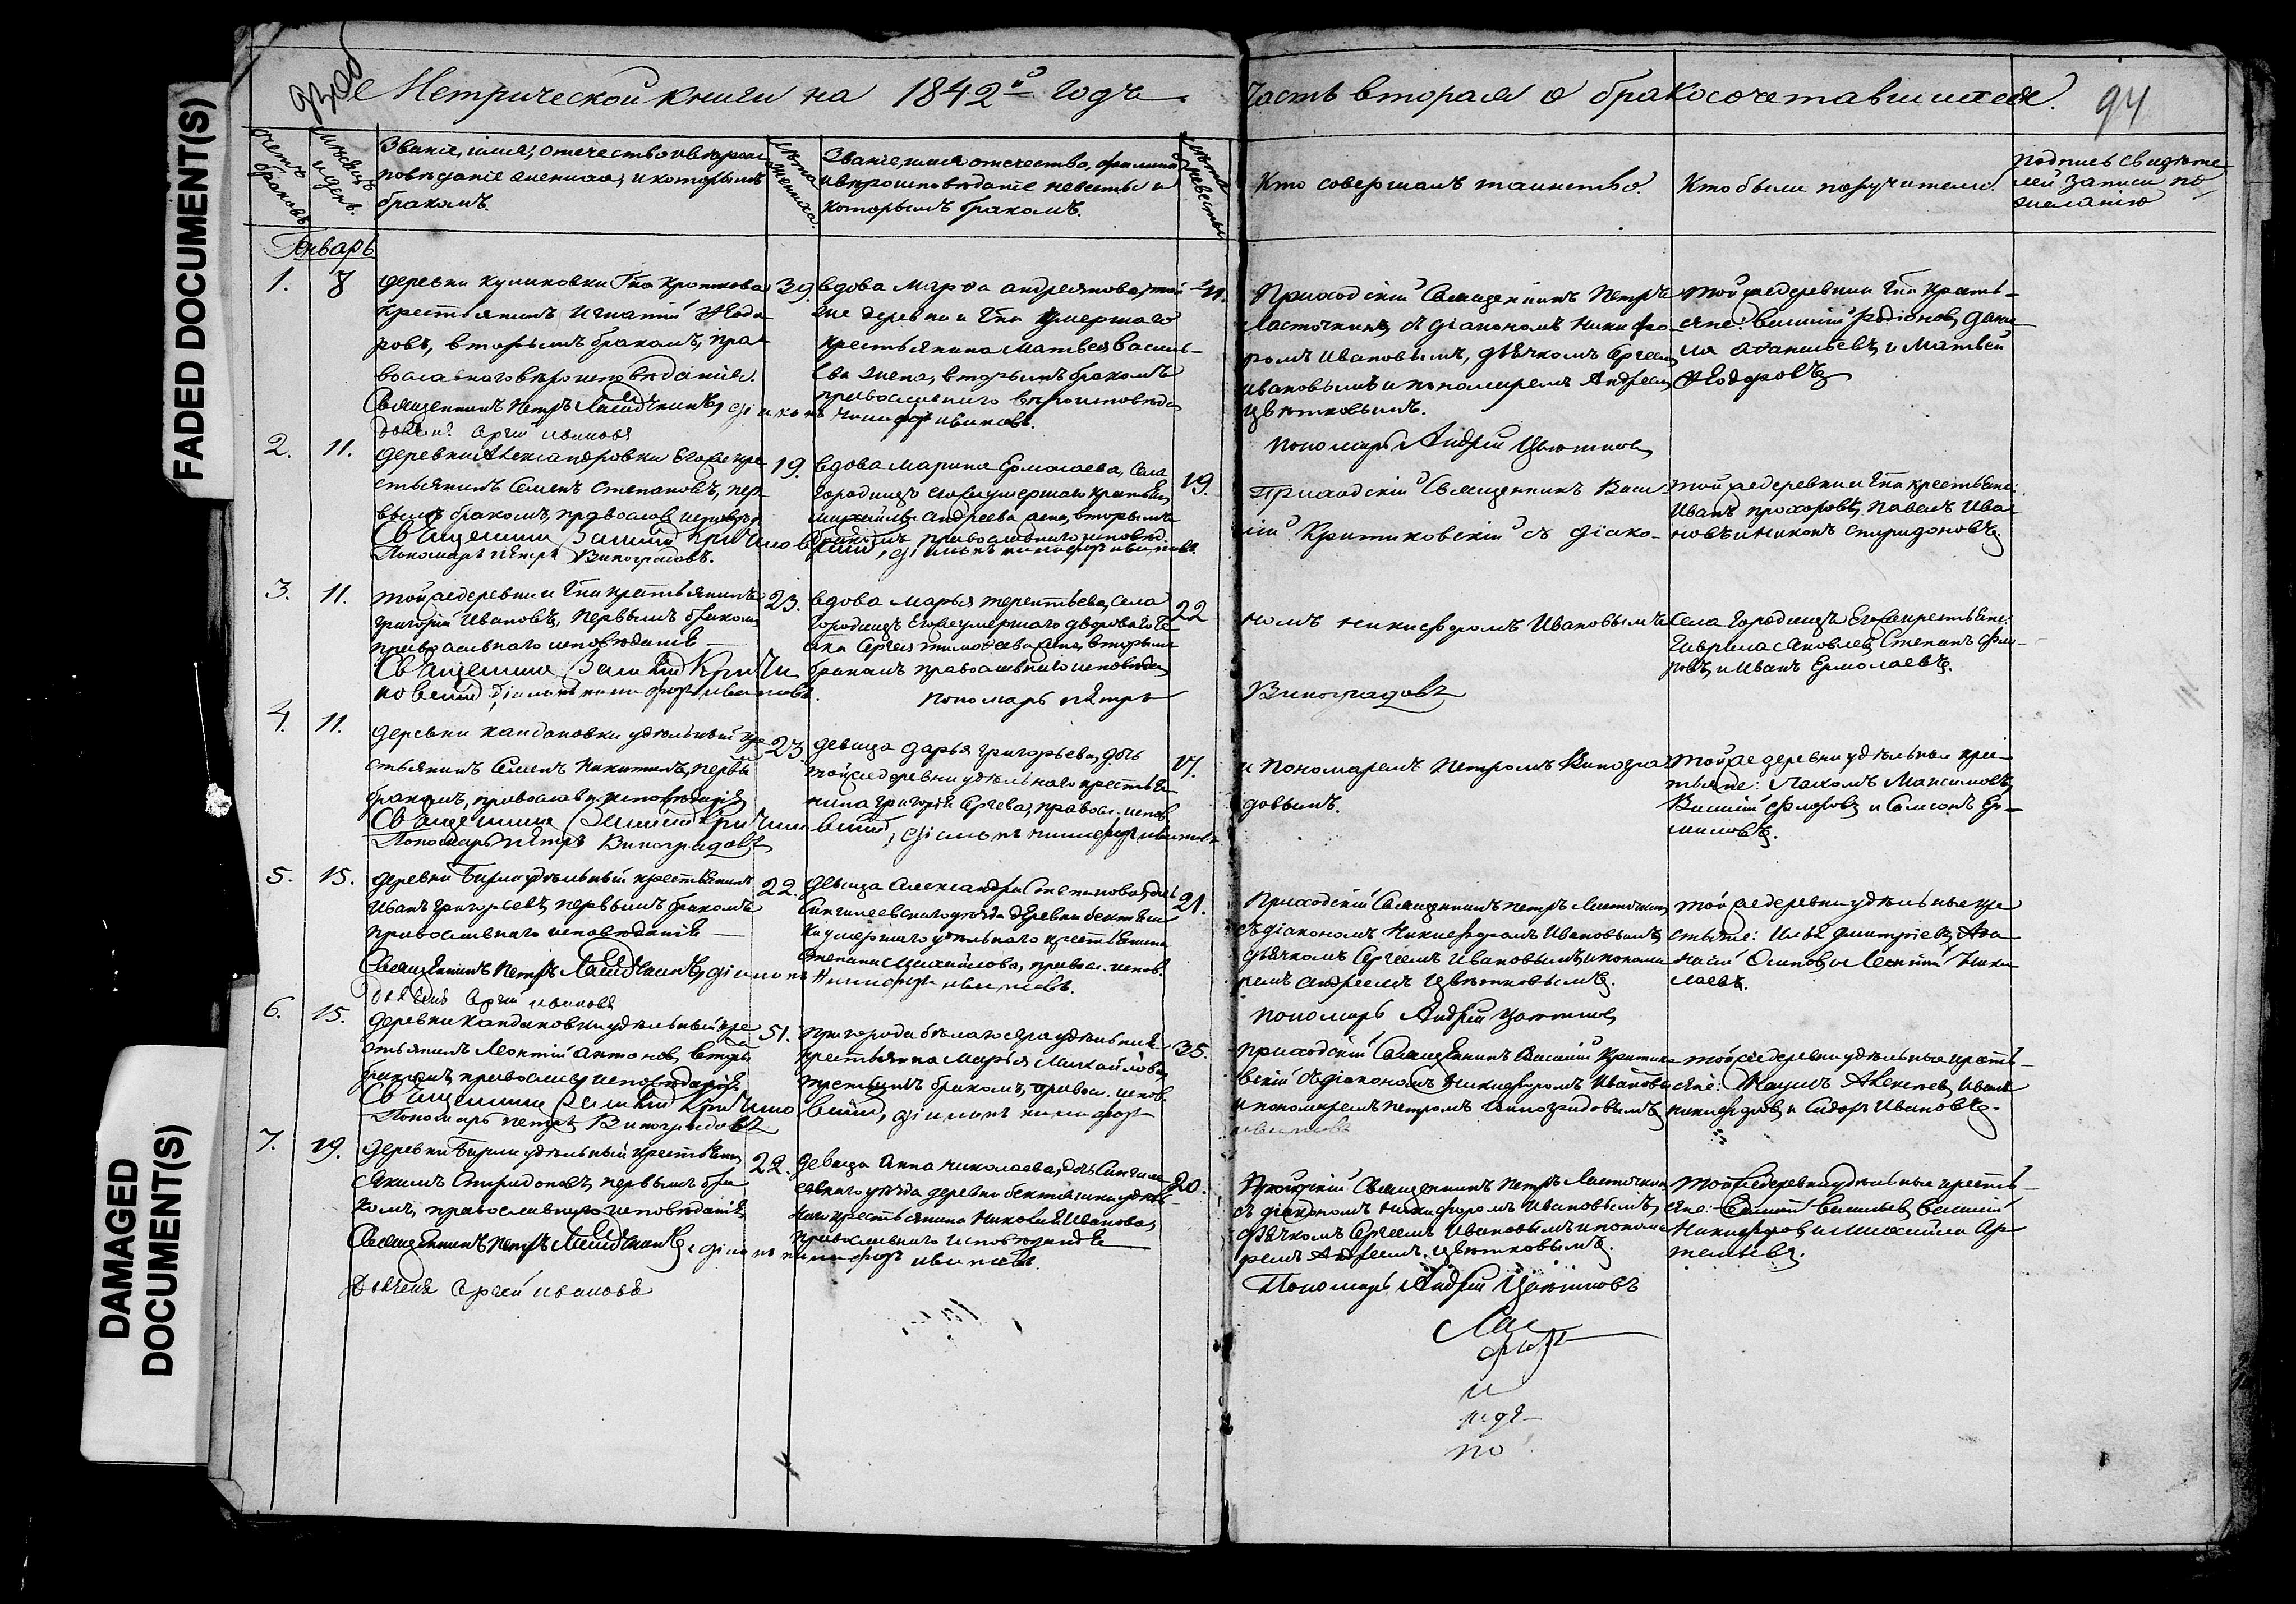 FADED DOCUMENT(S)
DAMAGED
DOCUMENT(S)
Метрической книги на 1842й годъ
Часть вторая о бракосочетавшихся.
94
счетъ браковъ
мѣсяцъ и день.
Званіе, имя, отечество и вѣроис
повѣданіе жениха, и которымъ
бракомъ.
лѣта жениха.
Званіе имя отечество, фамилія
и вѣроисповѣданіе невесты и
которымъ бракомъ.
лѣта невесты
Кто совершалъ таинство.
Кто были поручители.
подпись свидѣте
лей записи по
желанію
Январь
1.
8
деревни куликовки Гна Кроткова
крестьянинъ Игнатій Ѳеодо
ровъ, вторымъ бракомъ, пра
вославнаго вѣроисповѣданія.
Священникъ Петръ Ласточкинъ, діаконъ Никифоръ Ивановъ
дьячекъ Сергій Ивановъ
39.
вдова Марѳа андреянова, той
же деревни Гна умершаго
крестьянина Матвея Василь-
ева жена, вторымъ бракомъ
православнаго вѣроисповѣда
Приходскій Священникъ Петръ
Ласточкинъ, съ діакономъ Никифо-
ромъ Ивановымъ, дьячкомъ Сергеемъ
Ивановымъ и пономаремъ Андреемъ
Цвѣтковымъ.
Пономарь Андрей Цвѣтковъ
той же деревни Гна кресть-
яне: Василій Родіоновъ, Дани
ла Аѳанасьевъ, и Матвей
Ѳеодоровъ
2.
11.
деревни Александровки Егоже кре
стьянинъ Семенъ Степановъ, пер-
вымъ бракомъ, православ. исповѣд
Священникъ Василій Критиковскій, діаконъ Никифоръ Ивановъ
Пономарь Петръ Виноградовъ.
19.
вдова Марина Ермолаева, Села
Городищъ Егоже умершаго крестьян
Михайлы Андреева жена, вторымъ
бракомъ православнаго исповѣд
19.
Приходскій Священникъ Васи-
лій Критиковскій съ діако-
той же деревни Гна крестьяне:
Иванъ Прохоровъ, Павелъ Ива
новъ и Никонъ Спиридоновъ.
3.
11.
той же деревни Гна крестьянинъ
Григорій Ивановъ, первымъ бракомъ
православнаго исповѣданія
Священникъ Василій Крити
ковскій, діаконъ Никифоръ Ивановъ.
23.
вдова Марья Терентьева, Села
Городищъ Егоже умершаго двороваго че
ловѣка Сергея Тимоѳеева жена, вторымъ
бракомъ православнаго исповѣдан
Пономарь Петръ
22
номъ Никифоромъ Ивановымъ
Виноградовъ
Села Городищъ Егоже крестьяне:
Гаврила Яковлевъ, Степанъ
и Иванъ Ермолаевъ.
4.
11.
деревни Кандаковки удѣльный кре
стьянинъ Семенъ Никитинъ, первы
бракомъ, православн. исповѣданія
Священникъ Василій Критиковскій, діаконъ Никифоръ Ивановъ
Пономарь Петръ Виноградовъ
23.
девица Дарья Григорьева, дочь
той же деревни удѣльнаго крестья
нина Григорія Сергева, правосл. испов
17.
и Пономаремъ Петромъ Виногра
довымъ.
той же деревни удѣльные крес
тьяне: Пахомъ Максимовъ,
Василій Федоровъ и Самсонъ Ер-
миловъ.
5.
15.
деревни Бирли удѣльный крестьянинъ
Иванъ Григорьевъ, первымъ бракомъ
православнаго исповѣданія
Священникъ Петръ Ласточкинъ, діаконъ Никифоръ Ивановъ.
дьячекъ Сергій Ивановъ
22.
девица Александра Степанова, дочь
Сингилеевскаго уѣзда деревни Бектяш
ки умершаго удѣльнаго крестьянина
Степана Михайлова, правосл. испов.
21.
Приходскій Священникъ Петръ Ласточкинъ
съ діакономъ Никифоромъ Ивановымъ,
дьячкомъ Сергеемъ Ивановымъ и понома
ремъ Андреемъ Цвѣтковымъ.
Пономарь Андрей Цвѣтковъ
той же деревни удѣльные кре
стьяне: Илья Дмитріевъ, Аѳа
насій Осиповъ и Леонтій Нико
лаевъ.
6.
15.
деревни Кандаковки удѣльный кре
стьянинъ Леонтій Антоновъ, вторы
бракомъ, православ. исповѣданія
Священникъ Василій Критиковскій, діаконъ Никифоръ
Пономарь Петръ Виноградовъ
51.
пригорода Бѣлаго Яра удѣльная
крестьянка Марья Михайлова
третьимъ бракомъ, правосл. испов
35.
Приходскій Священникъ Василій Критико
вскій съ діакономъ Никифоромъ Ивановы
и пономаремъ Петромъ Виноградовымъ
Ивановъ
той же деревни удѣльные кресть
яне: Наумъ Алексеевъ, Иванъ
Никифоровъ и Сидоръ Ивановъ.
7.
19.
деревни Бирли удѣльный крестьяни
Якимъ Спиридоновъ, первымъ бра
комъ, православнаго исповѣданія
Священникъ Петръ Ласточкинъ, діаконъ Никифоръ Ивановъ.
Дьячекъ Сергій Ивановъ
22.
девица Анна Николаева, дочь Сингиле
евскаго уѣзда деревни Бектяшки удѣль
наго крестьянина Николая Иванова,
православнаго исповѣданія
20.
Приходскій Священникъ Петръ Ласточкинъ
съ діакономъ Никифоромъ Ивановымъ,
дьячкомъ Сергеемъ Ивановымъ и понома
ремъ Андреемъ Цвѣтковымъ.
Пономарь Андрей Цвѣтковъ
той же деревни удѣльные кресть-
яне: Василій Васильевъ, Василій
Никифоровъ и Михайла Ар
темьевъ.
и
по